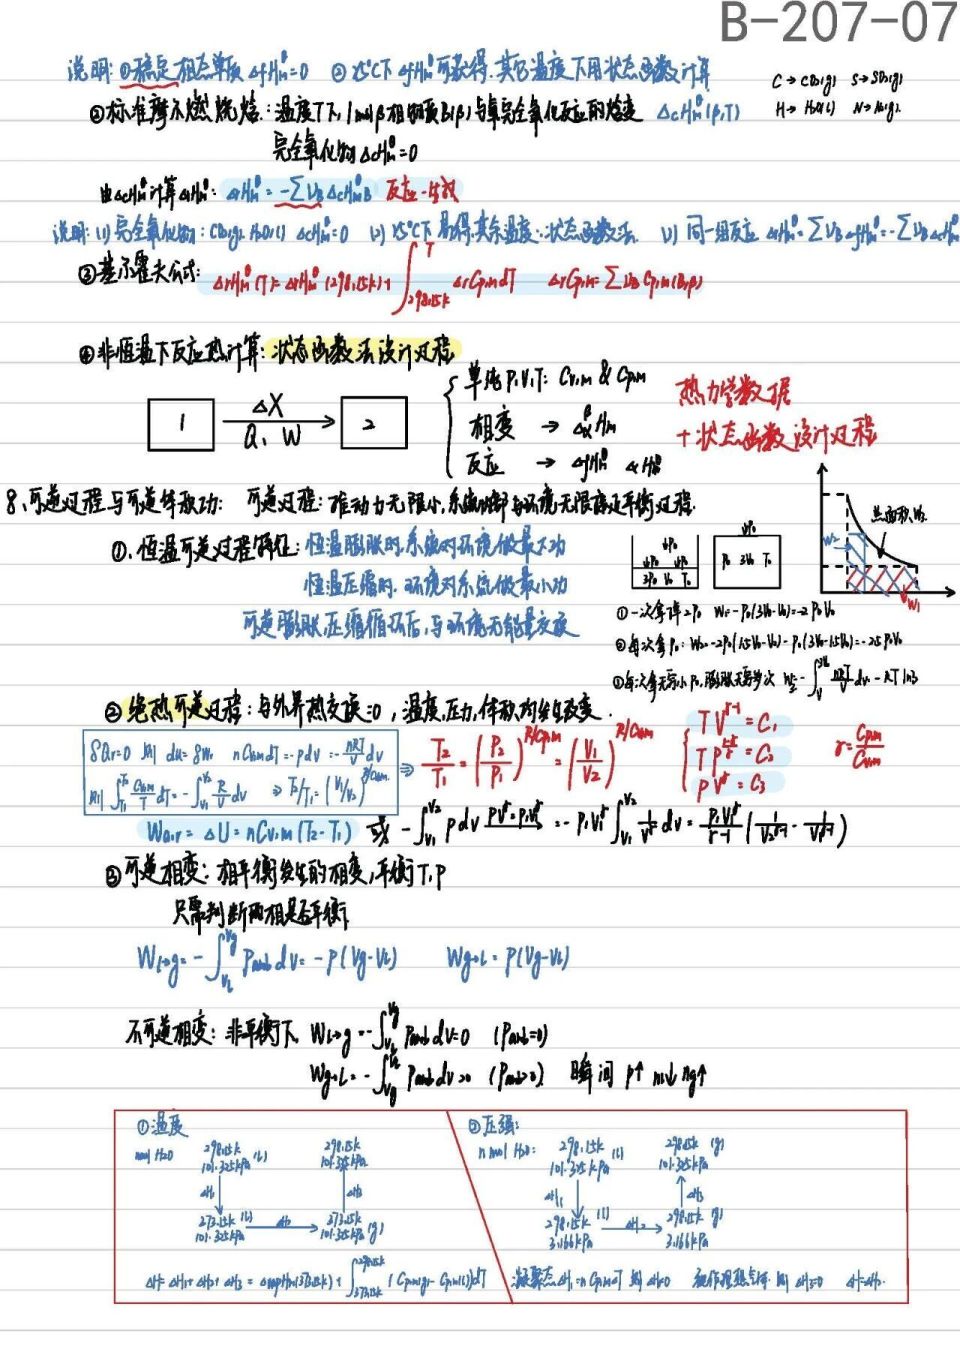 B-207-07
说明: ①稳定相态单质 ΔfHm^θ=0 ②25℃下 ΔfHm^θ可获得.其它温度下用状态函数计算
C→CO₂(g) S→SO₂(g)
H→H₂O(l) N→N₂(g).
②标准摩尔燃烧焓: 温度T下, 1mol β相物质B(β)与氧完全氧化反应的焓变 ΔcHm^θ(β,T)
完全氧化物ΔcHm^θ=0
由ΔcHm^θ计算ΔrHm^θ: ΔrHm^θ = -∑νB ΔcHm^θ,B 反应-生成
说明: (1) 完全氧化物: CO₂(g). H₂O(l) ΔcHm^θ=0 (2) 25℃下易得,其余温度:状态函数法. (3) 同一组反应 ΔrHm^θ=∑νBΔfHm^θ=-∑νBΔcHm^θ
③基尔霍夫公式: ΔrHm^θ(T)=ΔrHm^θ(298.15K)+∫_{298.15K}^{T} ΔrCp,m dT ΔrCp,m=∑νB Cp,m(B,β)
④非恒温下反应热计算:状态函数法设计过程
1 ΔX Q, W 2
单纯P,V,T: Cv,m & Cp,m
相变 → Δ_α^β Hm
反应 → ΔfHm^θ ΔcHm^θ
热力学数据
+状态函数设计过程
8、可逆过程与可逆体积功: 可逆过程:推动力无限小,系统内部与环境无限接近平衡过程.
①. 恒温可逆过程特征: 恒温膨胀时,系统对环境做最大功
恒温压缩时,环境对系统做最小功
可逆膨胀,压缩循环后,与环境无能量交换
↓P₀
↓P₀ ↓P₀
3P₀ V₀ T₀
↓P₀
P₀ 3V₀ T₀
总面积W₃
W₂
W₁
①一次拿掉2P₀ W₁=-P₀(3V₀-V₀)=-2P₀V₀
②每次拿P₀: W₂=-2P₀(1.5V₀-V₀)-P₀(3V₀-1.5V₀)=-2.5P₀V₀
③每次拿无穷小P₀,膨胀无穷多次 W₃=-∫_{V}^{3V} nRT/V dV=-RT ln3
②绝热可逆过程:与外界热交换=0,温度,压力,体积均发生改变.
δQr=0 则 dU=δWr nCv,mdT=-pdV=-nRT/V dV
则 ∫_{T₁}^{T₂} Cv,m/T dT=-∫_{V₁}^{V₂} R/V dV ⇒ T₂/T₁=(V₁/V₂)^{R/Cv,m}
⇒ T₂/T₁=(P₂/P₁)^{R/Cp,m}=(V₁/V₂)^{R/Cv,m}
TV^{γ-1}=C₁
TP^{(1-γ)/γ}=C₂
PV^γ=C₃
γ=Cp,m/Cv,m
Wa,r=ΔU=nCv,m(T₂-T₁) 或 -∫_{V₁}^{V₂} pdV =PV^γ=P₁V₁^γ= -P₁V₁^γ∫_{V₁}^{V₂} 1/V^γ dV=P₁V₁^γ/(γ-1) (1/V₂^{γ-1}-1/V₁^{γ-1})
③可逆相变:相平衡发生的相变,平衡T,P
只需判断两相是否平衡
Wl→g=-∫_{Vl}^{Vg} Pamb dV=-P(Vg-Vl) Wg→l=P(Vg-Vl)
不可逆相变: 非平衡下 Wl→g=-∫_{Vl}^{Vg} Pamb dV=0 (Pamb=0)
Wg→l=-∫_{Vg}^{Vl} Pamb dV>0 (Pamb>0) 瞬间 P↑ nl↓ ng↑
①温度
nmol H₂O 298.15K 101.325kPa (l) 298.15K 101.325kPa
ΔH₁ ΔH₃
373.15K 101.325kPa (l) ΔH₂ 373.15K 101.325kPa (g)
ΔH=ΔH₁+ΔH₂+ΔH₃=ΔvapHm(373.15K)+∫_{373.15K}^{298.15K} (Cp,m(g)-Cp,m(l))dT
②压强:
n mol H₂O: 298.15K 101.325kPa (l) 298.15K 101.325kPa (g)
ΔH₁ ΔH₃
298.15K 3.166kPa (l) ΔH₂ 298.15K 3.166kPa (g)
凝聚态ΔH₁=nCp,mΔT 则ΔH₁=0 视作理想气体.则ΔH₃=0 ΔH=ΔH₂.